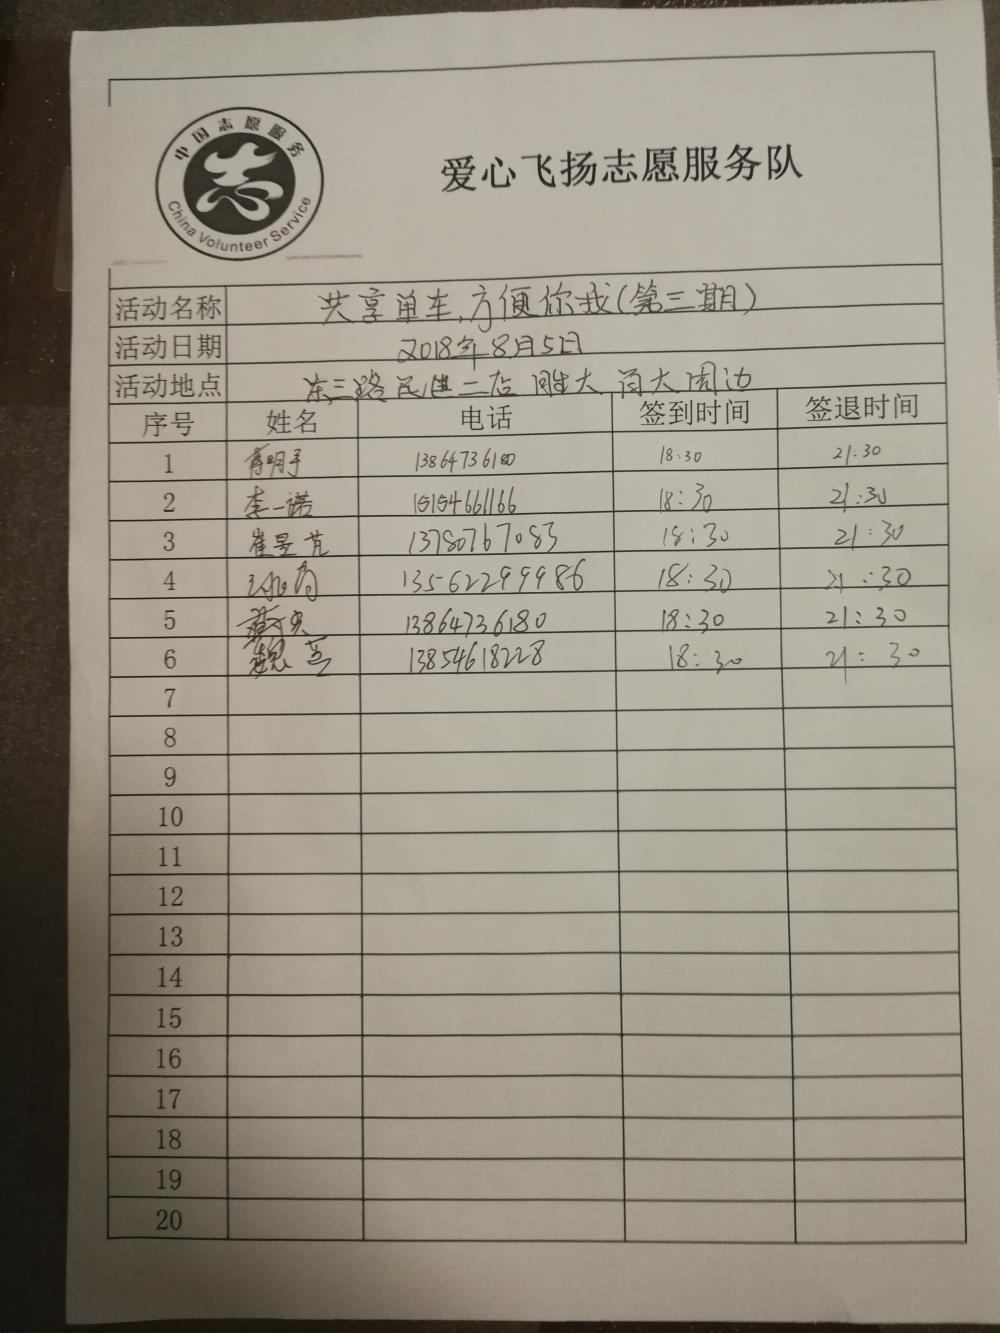 中国志愿服务
China Volunteer Service
爱心飞扬志愿服务队
活动名称 共享单车,方便你我(第三期)
活动日期 2018年8月5日
活动地点 东三路民健二店 胜大 商大周边
序号 姓名 电话 签到时间 签退时间
1 13864736180 18:30 21:30
2 李一诺 15154661166 18:30 21:30
3 崔昱 13780767083 18:30 21:30
4 13562299986 18:30 21:30
5 13864736180 18:30 21:30
6 魏芝 13854618228 18:30 21:30
7
8
9
10
11
12
13
14
15
16
17
18
19
20